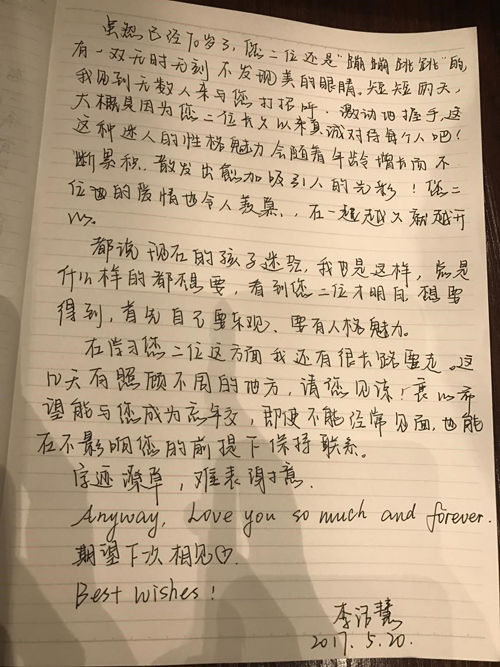 虽然已经70岁了,您二位还是"蹦蹦跳跳"的
有一双无时无刻不发现美的眼睛。短短两天,
我见到无数人来与您打招呼、激动地握手,这
大概是因为您二位长久以来真诚对待每个人吧!
这种迷人的性格魅力会随着年龄增长而不
断累积,散发出愈加吸引人的光彩!您二
位的爱情也令人羡慕,在一起越久就越开
心。
都说现在的孩子迷茫,我也是这样,总是
什么样的都想要,看到您二位才明白想要
得到,首先自己要乐观、要有人格魅力。
在学习您二位这方面我还有很长路要走。这
几天有照顾不周的地方,请您见谅!衷心希
望能与您成为忘年交,即使不能经常见面,也能
在不影响您的前提下保持联系。
字迹潦草,难表谢意.
Anyway, Love you so much and forever.
期望下次相见♡.
Best wishes!
李 慧
2017.5.20.